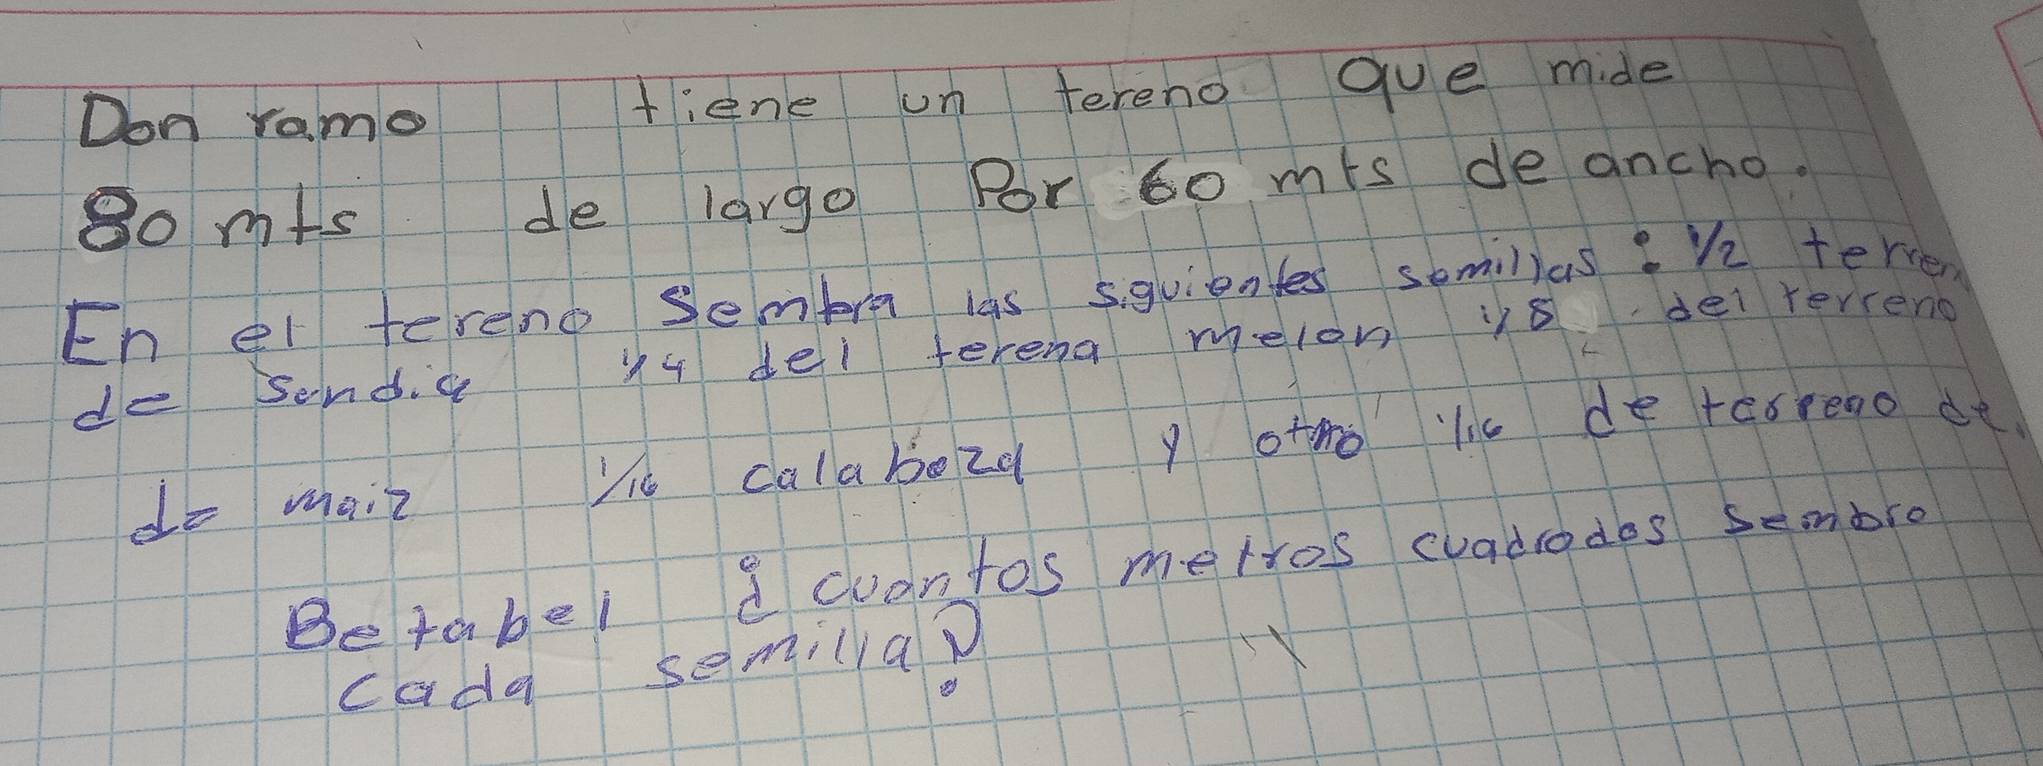 Don ramo tiene un tereno que mide
80 mts de largo Por 60 mts de ancho.
En el tereno Sembra las siguientes semillas : 1/2 terren
de Sandia 1/4 del terena melon 1/8 del terreno
de maiz 1/16 calabeza y otro 1/16 de terreno de
Betabel ¿ cuantos metros cuadrados sembro
cada semilla?